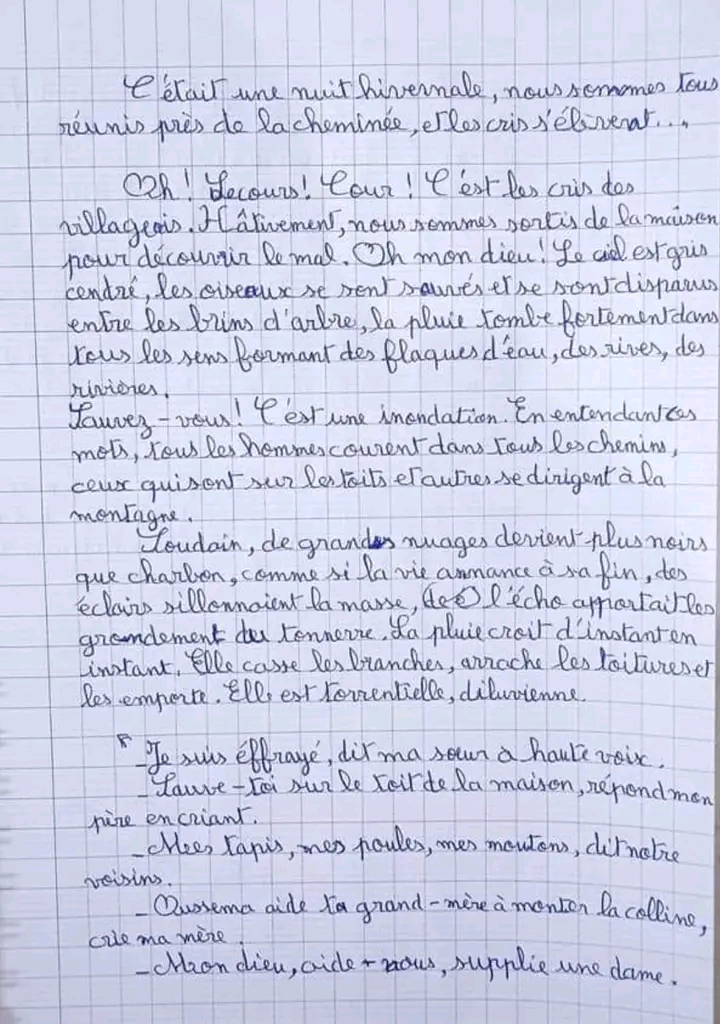 C'était une nuit hivernale, nous sommes tous
réunis près de la cheminée, et les cris s'élivrerat...
Oh! Secours! Cour! C'est les cris des
villageois. Hâtivement, nous sommes sortis de la maison
pour découvrir le mal. Oh mon dieu! Le ciel est gris
cendré, les oiseaux se sont sauvés et se sont disparus
entre les brins d'arbre, la pluie tombe fortement dans
tous les sens formant des flaques d'eau, des rives, des
rivières.
Sauvez-vous! C'est une inondation. En entendant ces
mots, tous les hommes courent dans tous les chemins,
ceux qui sont sur les toits et autres se dirigent à la
montagne.
Soudain, de grandes nuages devient plus noirs
que charbon, comme si la vie annance à sa fin, des
éclairs sillonnaient la masse, de l'écho apportait les
grondement du tonnerre. La pluie croit d'instant en
instant. Elle casse les branches, arrache les toitures et
les emporte. Elle est torrentielle, diluvienne.
_Je suis éffrayé, dit ma sœur à haute voix.
_Sauve-toi sur le toit de la maison, répond mon
père en criant.
_Mees tapis, mes poules, mes moutons, dit notre
voisins.
_Oussema aide ta grand-mère à monter la colline,
crie ma mère.
_Mon dieu, aide-nous, supplie une dame.